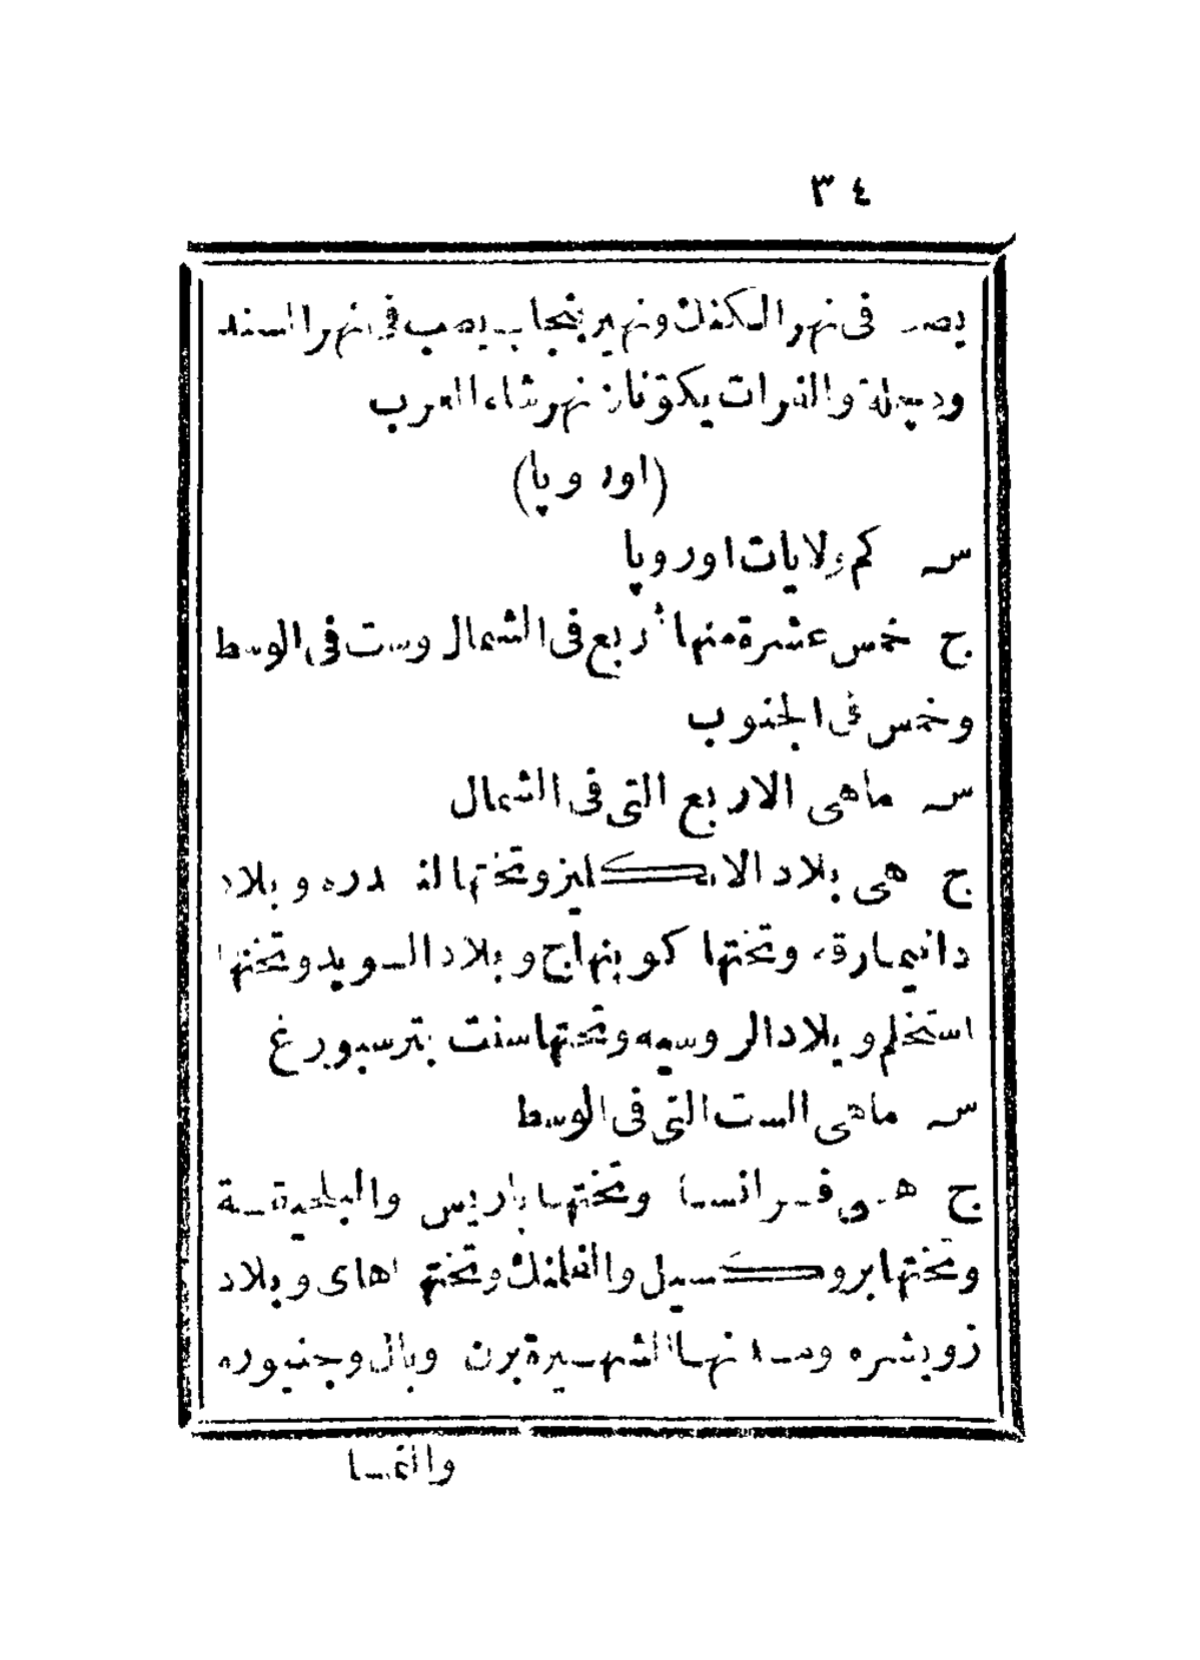 ٣٤
يصب فى نهر الكنك ونهير پنجاب يصب فى نهر السند
ودجلة والفرات يكونان نهر شط العرب
(اوروپا)
س كم ولايات اوروپا
ج خمس عشرة منها أربع فى الشمال وست فى الوسط
وخمس فى الجنوب
س ماهى الاربع التى فى الشمال
ج هى بلاد الانكليز وتختها لندره وبلاد
دانيمارقه وتختها كوبنهاج وبلاد السويد وتختها
استخلم وبلاد الروسيه وتختها سنت بترسبورغ
س ماهى الست التى فى الوسط
ج هى فرانسا وتختها باريس والبلجيقة
وتختها بروكسيل والفلمنك وتختها اهاى وبلاد
زويشره ومدنها الشهيرة برن وبال وجنيوره
والنمسا